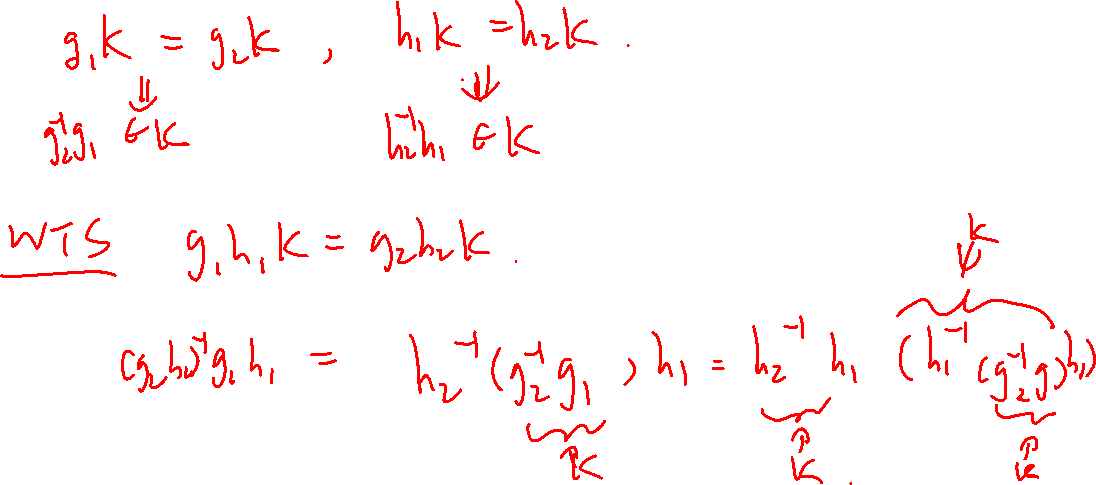 g₁K = g₂K , h₁K = h₂K .
⇓ ⇓
g₂⁻¹g₁ ∈ K h₂⁻¹h₁ ∈ K
WTS g₁h₁K = g₂h₂K .
K
(g₂h₂)⁻¹g₁h₁ = h₂⁻¹(g₂⁻¹g₁)h₁ = h₂⁻¹h₁(h₁⁻¹(g₂⁻¹g)h₁)
K K K